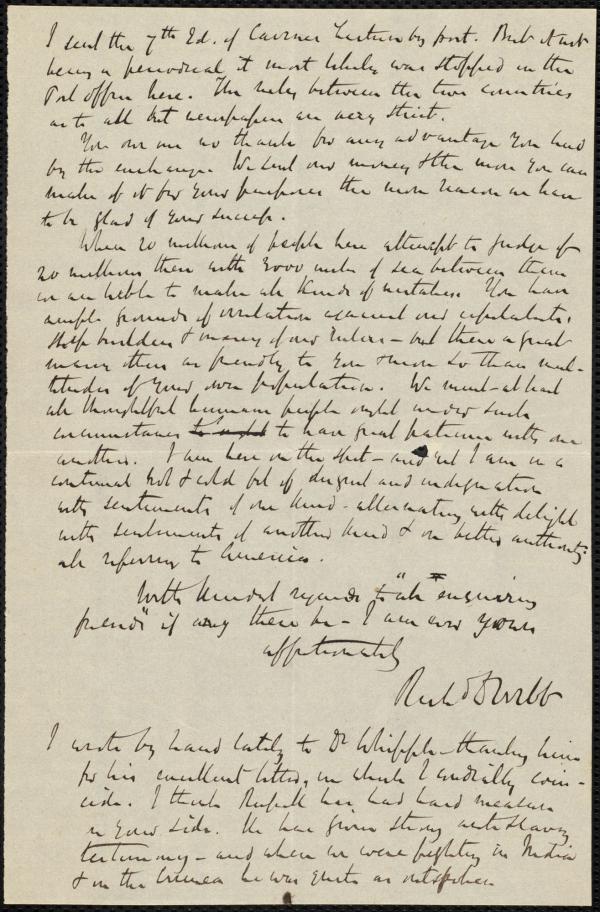 I send the 7th Ed. of Cairnes Lecture by post. But it not
being a periodical it most likely was stopped in the
Post office here. The rules between the two countries
as to all but newspapers are very strict.
You owe me no thanks for any advantage you had
by the exchange. We send our money & the more you can
make of it for your purposes the more reason we have
to be glad of your success.
When 20 millions of people here attempt to judge of
20 millions there with 3000 miles of sea between them
we are liable to make all kinds of mistakes. You have
ample grounds of irritation against our capitalists,
ship builders & many of our rulers – but there a great
many others as friendly to you & more so than mul-
titudes of your own population. We must – at least
all thoughtful humane people ought under such
circumstances to have great patience with one
another. I am here on the spot – and yet I am in a
continual hot & cold fit of disgust and indignation
with sentiments of one kind – alternating with delight
with sentiments of another kind & on better authority
all referring to America.
With kindest regards to "all enquiring
friends" if any there be – I am ever yours
affectionately
Richd D Webb
I wrote by hand lately to Dr Whipple thanking him
for his excellent letter, in which I cordially coin-
cide. I think Russell has had hard measure
on your side. He has given strong antislavery
testimony – and when we were fighting in India
& in the Crimea he was quite as outspoken